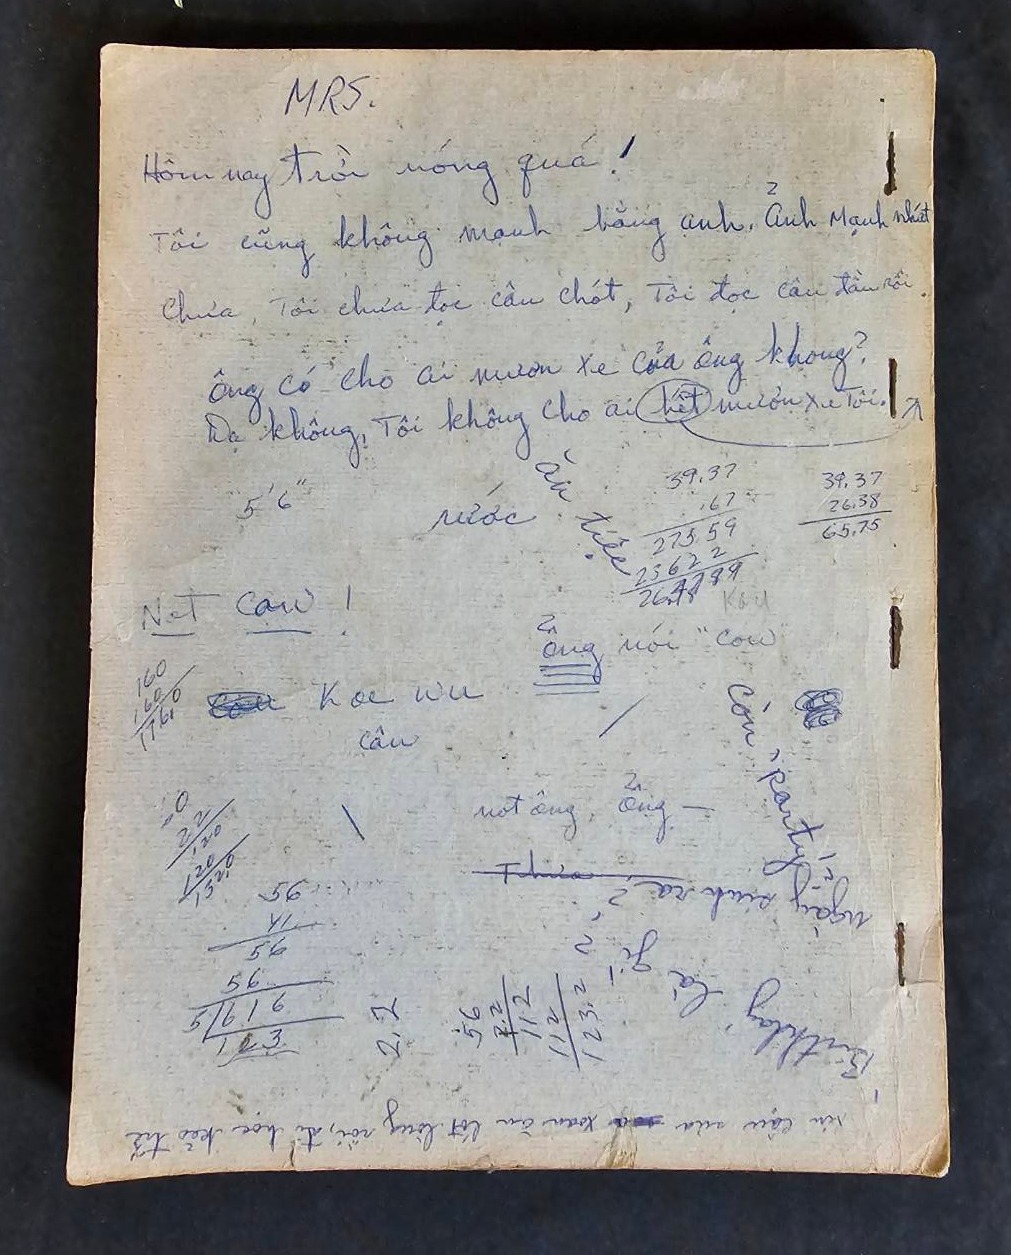 MRS.
Hôm nay trời nóng quá!
2
Tôi cũng không mạnh bằng anh. Ảnh mạnh nhất
Chưa, Tôi chưa đọc câu chót, Tôi đọc câu đầu rồi.
Ông có cho ai mượn xe của ông không?
Dạ không, Tôi không cho ai hết mượn xe Tôi.
5'6"
nước
ăn tiệc
39.37
.67
275.59
23622
39.37
26.38
65.75
Kou
Not Cow!
2
Ông nói "Cow"
160
160
176.0
Koe wu
câu
còn party
not ông, Ổng —
22
.20
120
132.0
Thưa
56
41
56
56
5/616
123
2.2
56
2.2
112
112
123.2
Birthday là gì?
ngày sinh ra?